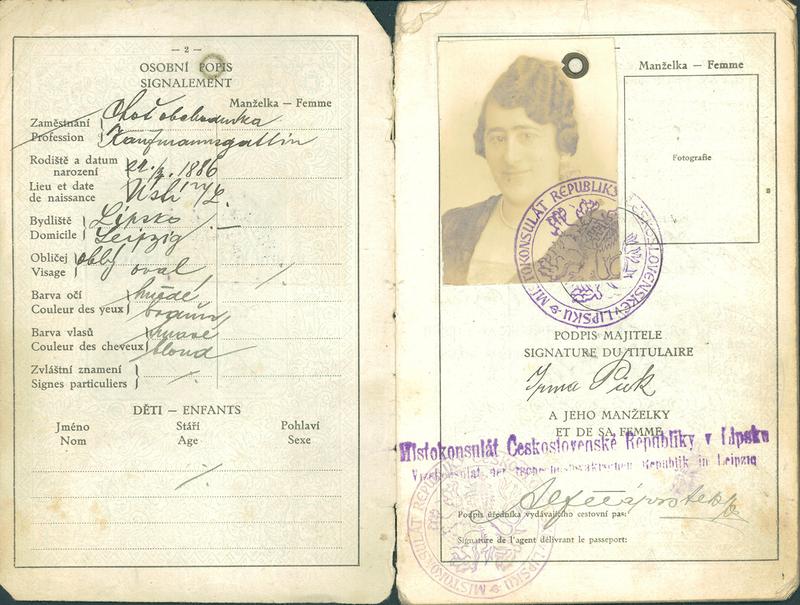 — 2 —
OSOBNÍ POPIS
SIGNALEMENT
Manželka — Femme
Zaměstnání
Profession
Choť obchodníka
Kaufmannsgattin
Rodiště a datum
narození
Lieu et date
de naissance
1886
Ústí n/L.
Bydliště
Domicile
Lipsko
Leipzig
Obličej
Visage
oblý
oval
Barva očí
Couleur des yeux
hnědé
braun
Barva vlasů
Couleur des cheveux
blond
Zvláštní znamení
Signes particuliers
DĚTI — ENFANTS
Jméno Stáří Pohlaví
Nom Age Sexe
Manželka — Femme
Fotografie
MÍSTOKONSULÁT REPUBLIKY ČESKOSLOVENSKÉ V LIPSKU
PODPIS MAJITELE
SIGNATURE DU TITULAIRE
Irma Pick
A JEHO MANŽELKY
ET DE SA FEMME
Místokonsulát Československé Republiky v Lipsku
Vizekonsulat der tschechoslovakischen Republik in Leipzig
Podpis úředníka vydávajícího cestovní pas:
Signature de l'agent délivrant le passeport:
MÍSTOKONSULÁT REPUBLIKY LIPSKU